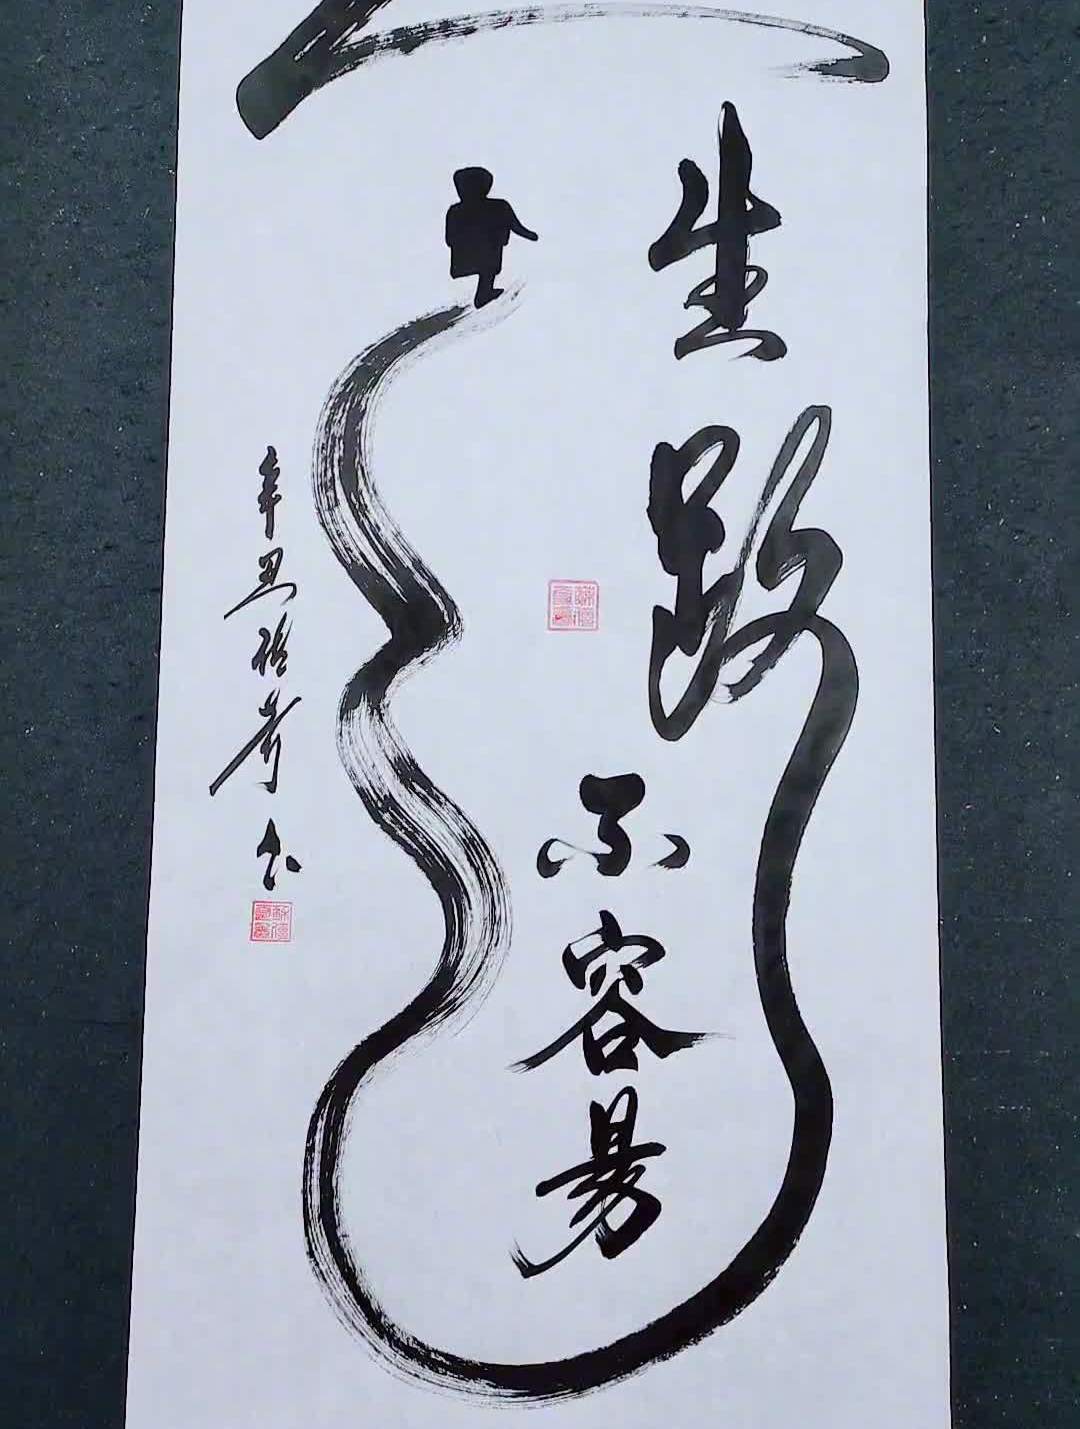 生路
不容易
辛丑
书